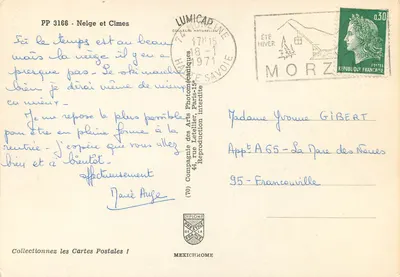 PP 3168 - Neige et Cimes
Ici le temps est au beau
mais la neige il y en a
presque pas. Le ski marche
bien je dirai même de mieux
en mieux.
Je me repose le plus possible
pour être en pleine forme à la
rentrée. J'espère que vous allez
bien et à bientôt.
Affectueusement
Marie Ange
Collectionnez les Cartes Postales !
LUMICAP
(70) Compagnie des Arts Photomécaniques
44, rue Letellier, Paris-15e
Reproduction interdite
MEXICHROME
17H15
1971
HAUTE SAVOIE
ÉTÉ
HIVER
MORZ
0,30
REPUBLIQUE FRANCAISE
Madame Yvonne GIBERT
Appt A 65 - La Mare des Noues
95 - Franconville